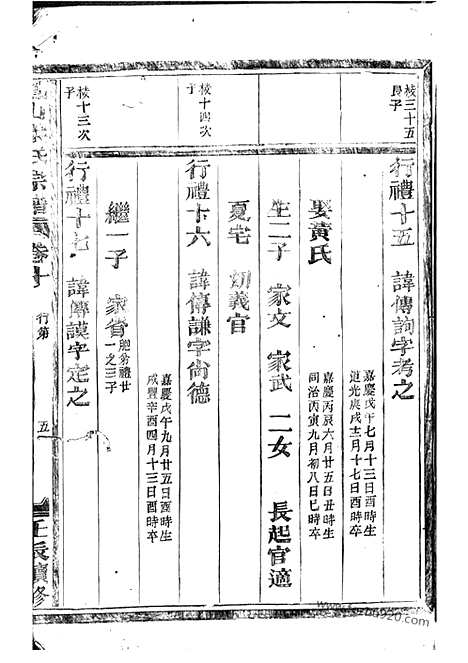 棱三十五
長子
行禮十五 諱傳詢字考之
嘉慶戊午七月十三日酉時生
道光庚戌十二月十七日酉時卒
娶黃氏
嘉慶丙辰六月廿五日丑時生
同治丙寅九月初八日巳時卒
生二子 家文 家武 二女 長起官適
夏宅 幼義官
棱十四次
子
行禮十六 諱傳謙字尚德
嘉慶戊午九月廿五日酉時生
咸豐辛酉四月十三日酉時卒
繼一子 家省
胞弟禮廿
一之三子
棱十三次
子
行禮十七 諱傳謨字定之
氏宗譜
卷十
行第
五
壬辰續修